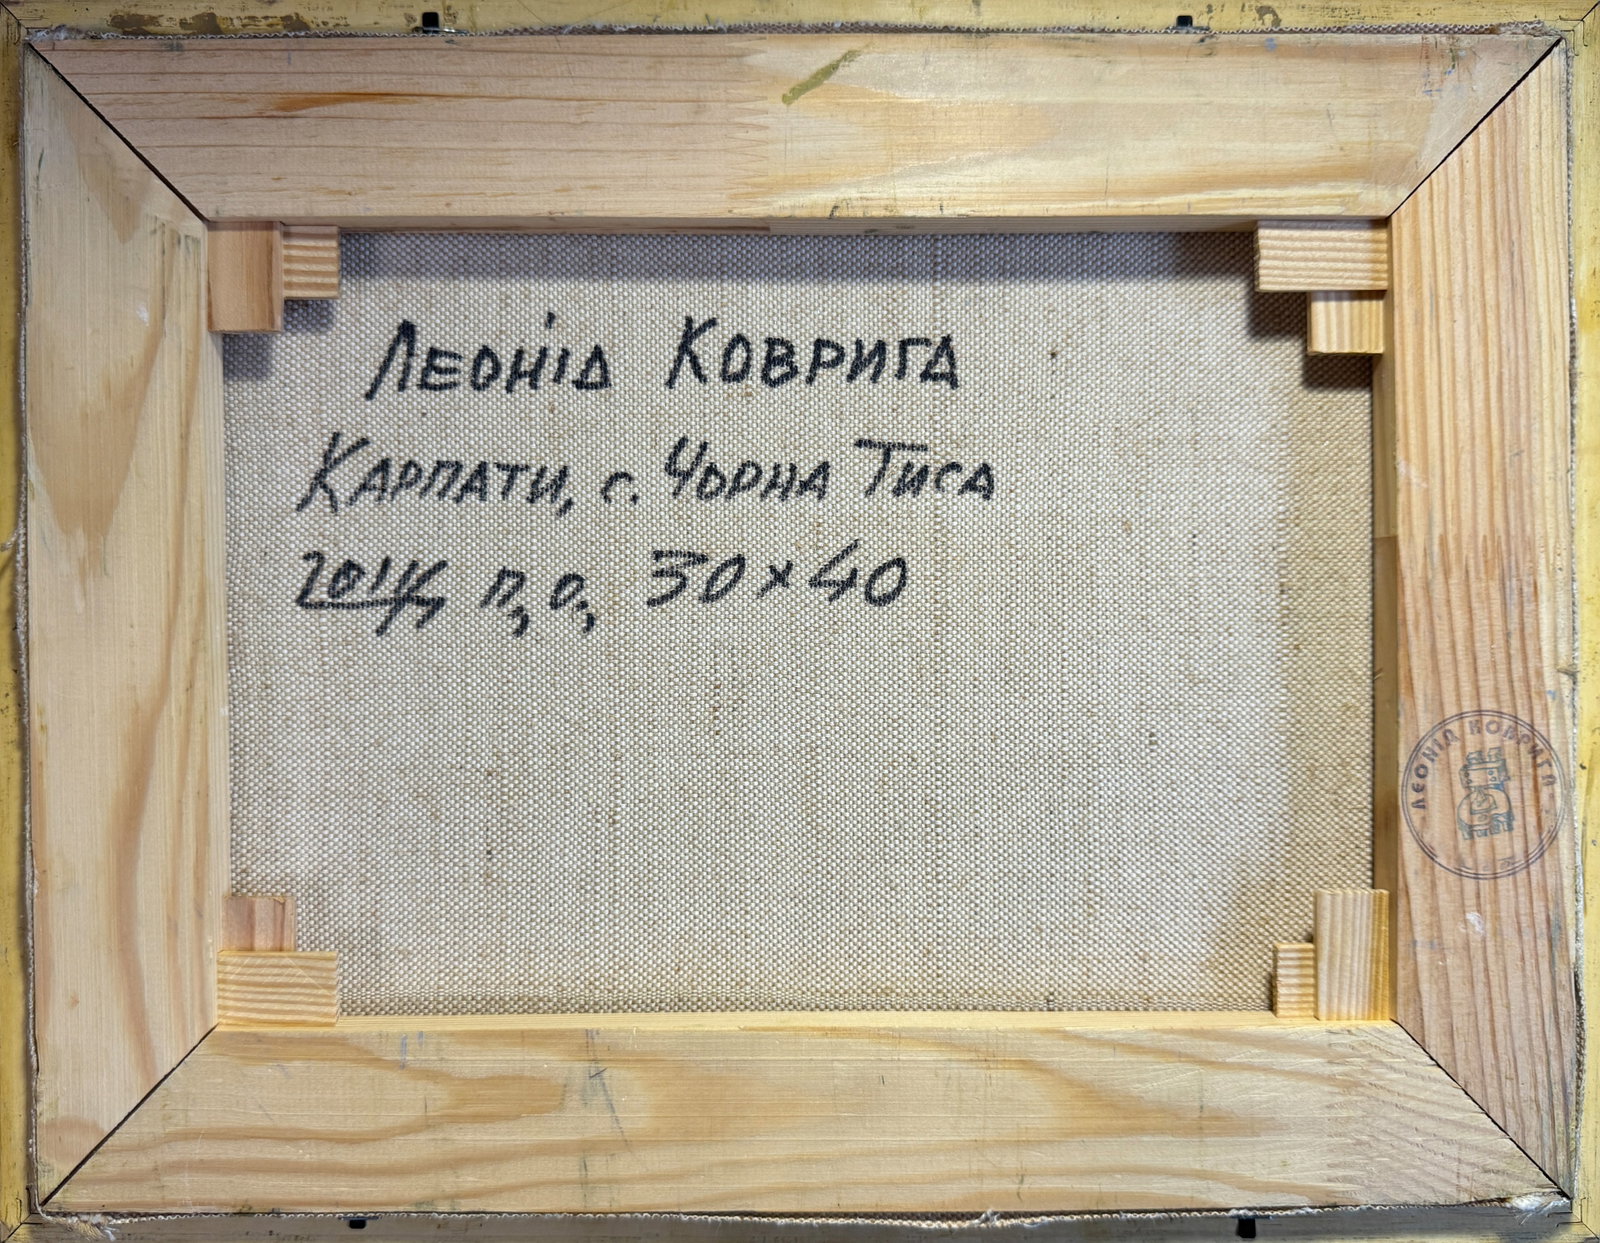 Леонід Коврига
Карпати, с. Чорна Тиса
п, о, 30 x 40
ЛЕОНІД КОВРИГА